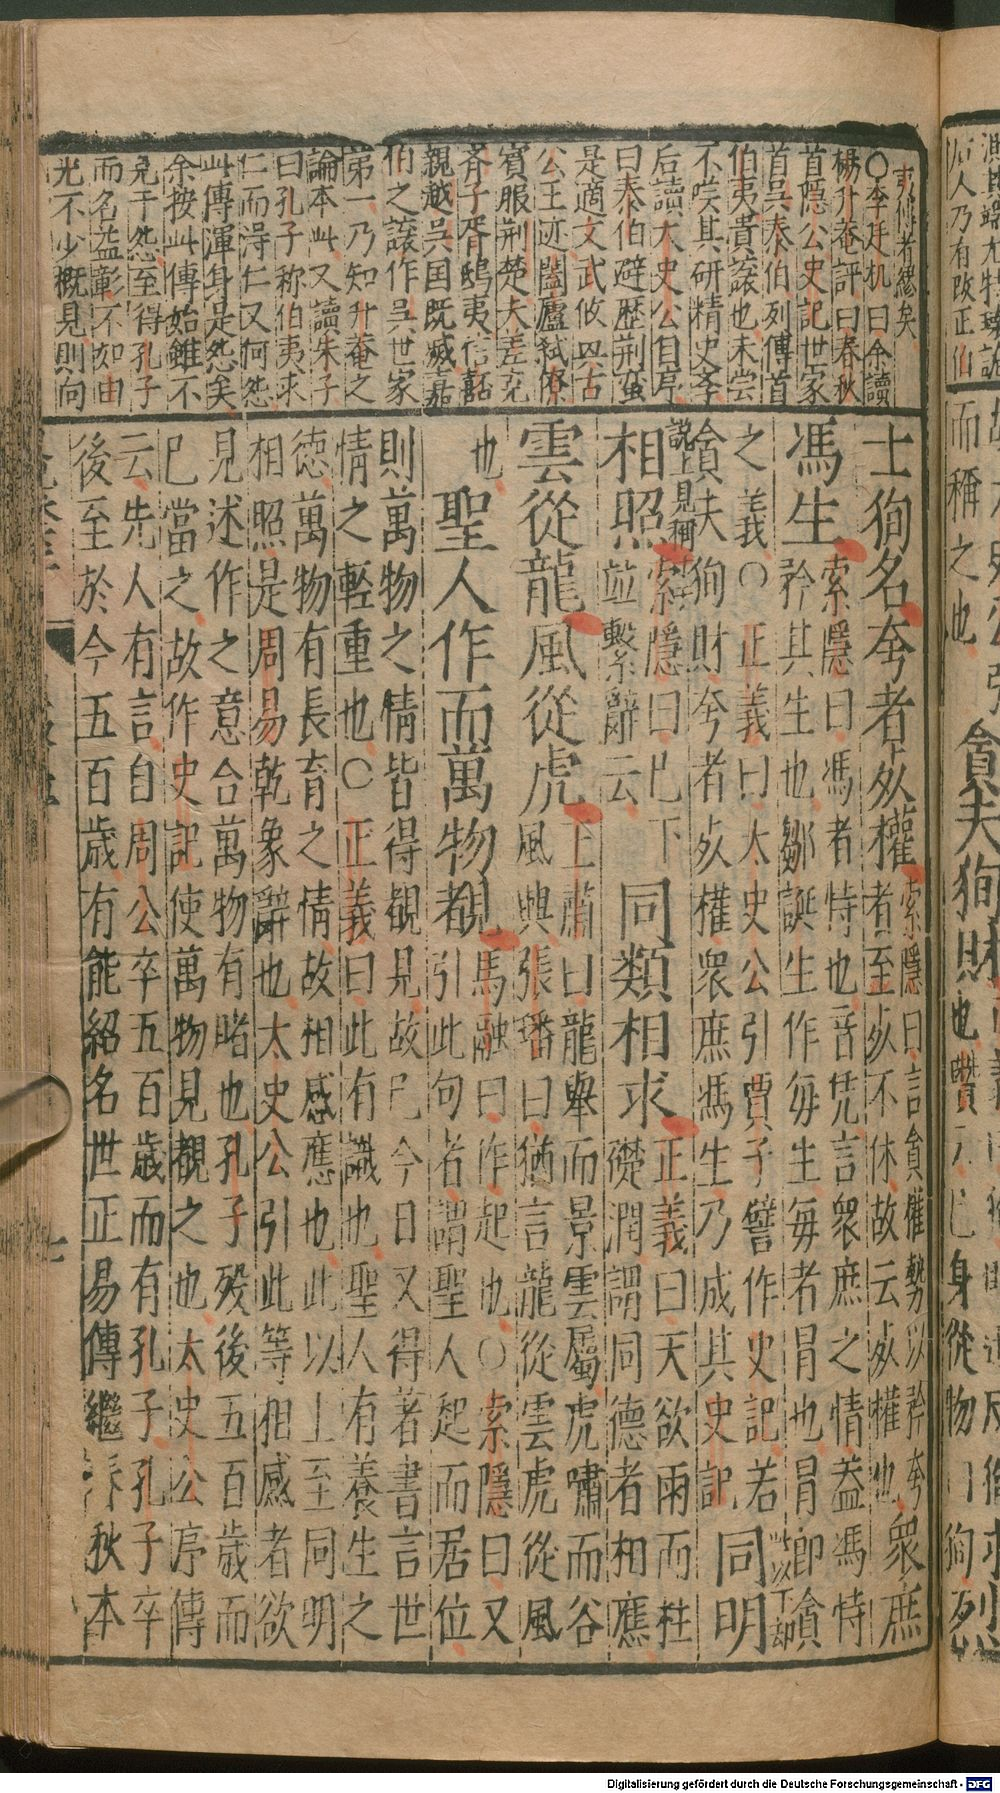 而稱之也
貪夫狥財
夷傳者總矣
○李廷机曰余讀
楊升菴評曰春秋
首隱公史記世家
首吳泰伯列傳首
伯夷貴讓也未嘗
不嘆其研精史学
后讀太史公自序
曰泰伯避歷荆蛮
是適文武攸興古
公王迹闔廬弒僚
賓服荆楚夫差克
斉子胥鴟夷信嚭
親越吳国既滅嘉
伯之讓作吳世家
第一乃知升菴之
論本此又讀朱子
曰孔子称伯夷求
仁而淂仁又何怨
此傳渾身是怨矣
余按此傳始雖不
免于怨至得孔子
而名益彰不如由
光不少概見則向
士狥名夸者死權
索隱曰言貪權勢以矜夸
者至死不休故云死權也
衆庶
馮生
索隱曰馮者恃也音凭言衆庶之情盖馮恃
矜其生也鄒誕生作毎生毎者冒也冒即貪
之義○正義曰太史公引賈子譬作史記若
貪夫狥財夸者死權衆庶馮生乃成其史記
此以下却
說上見稱
同明
相照
索隱曰已下
並繫辭云
同類相求
正義曰天欲雨而柱
礎潤謂同德者相應
雲從龍風從虎
王肅曰龍舉而景雲屬虎嘯而谷
風興張璠曰猶言龍從雲虎從風
也
聖人作而萬物覩
馬融曰作起也○索隱曰又
引此句者謂聖人起而居位
則萬物之情皆得覩見故己今日又得著書言世
情之輕重也○正義曰此有識也聖人有養生之
德萬物有長育之情故相感應也此以上至同明
相照是周易乾象辭也太史公引此等相感者欲
見述作之意合萬物有睹也孔子殁後五百歳而
已當之故作史記使萬物見覩之也太史公序傳
云先人有言自周公卒五百歳而有孔子孔子卒
後至於今五百歳有能紹名世正易傳繼春秋本
七
Digitalisierung gefördert durch die Deutsche Forschungsgemeinschaft - DFG